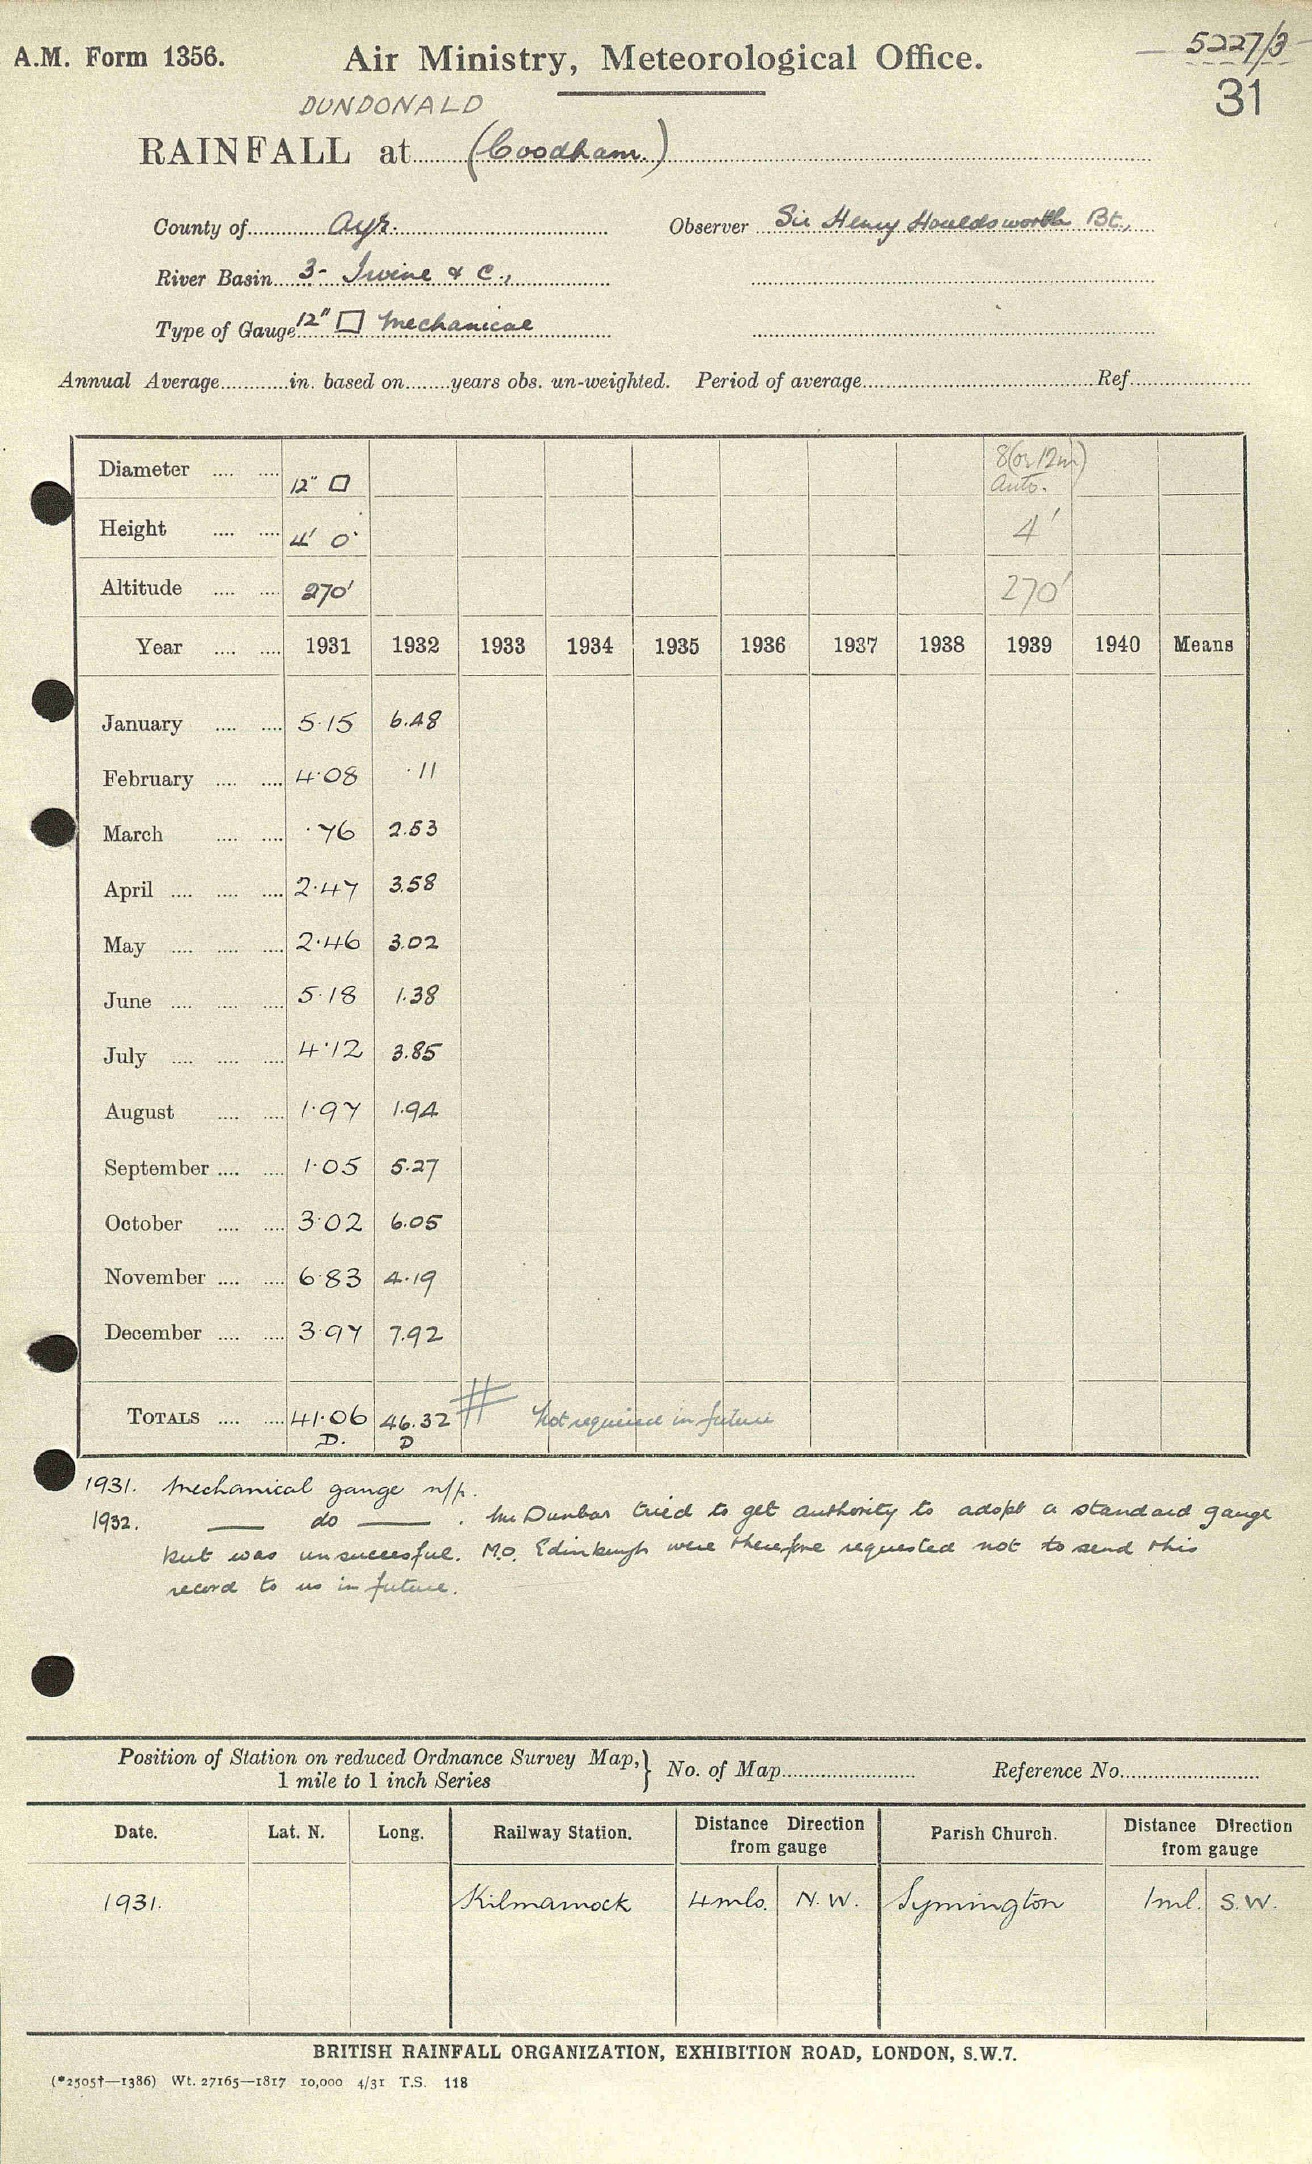 A.M. Form 1356.
Air Ministry, Meteorological Office.
5227/3
31
DUNDONALD
RAINFALL at (Coodham.)
County of Ayr.
Observer Sir Henry Houldsworth Bt.,
River Basin 3- Irvine & c.,
Type of Gauge 12" □ Mechanical
Annual Average in. based on years obs. un-weighted. Period of average Ref
Diameter 12" □ 8(or 12in) Auto.
Height 4' 0" 4'
Altitude 270' 270'
Year 1931 1932 1933 1934 1935 1936 1937 1938 1939 1940 Means
January 5·15 6.48
February 4·08 ·11
March ·76 2.53
April 2·47 3.58
May 2·46 3.02
June 5·18 1.38
July 4·12 3.85
August 1·97 1.94
September 1·05 5.27
October 3·02 6.05
November 6·83 4.19
December 3·97 7.92
TOTALS 41·06 46.32 Not required in future
D. D
1931. Mechanical gauge n/p.
1932. — do — . Mr Dunbar tried to get authority to adopt a standard gauge
but was unsuccessful. M.O. Edinburgh were therefore requested not to send this
record to us in future.
Position of Station on reduced Ordnance Survey Map,
1 mile to 1 inch Series
No. of Map
Reference No.
Date. Lat. N. Long. Railway Station. Distance Direction from gauge Parish Church. Distance Direction from gauge
1931. Kilmarnock 4 mls. N.W. Symington 1 ml. S.W.
BRITISH RAINFALL ORGANIZATION, EXHIBITION ROAD, LONDON, S.W.7.
(*2505†—1386) Wt. 27165—1817 10,000 4/31 T.S. 118